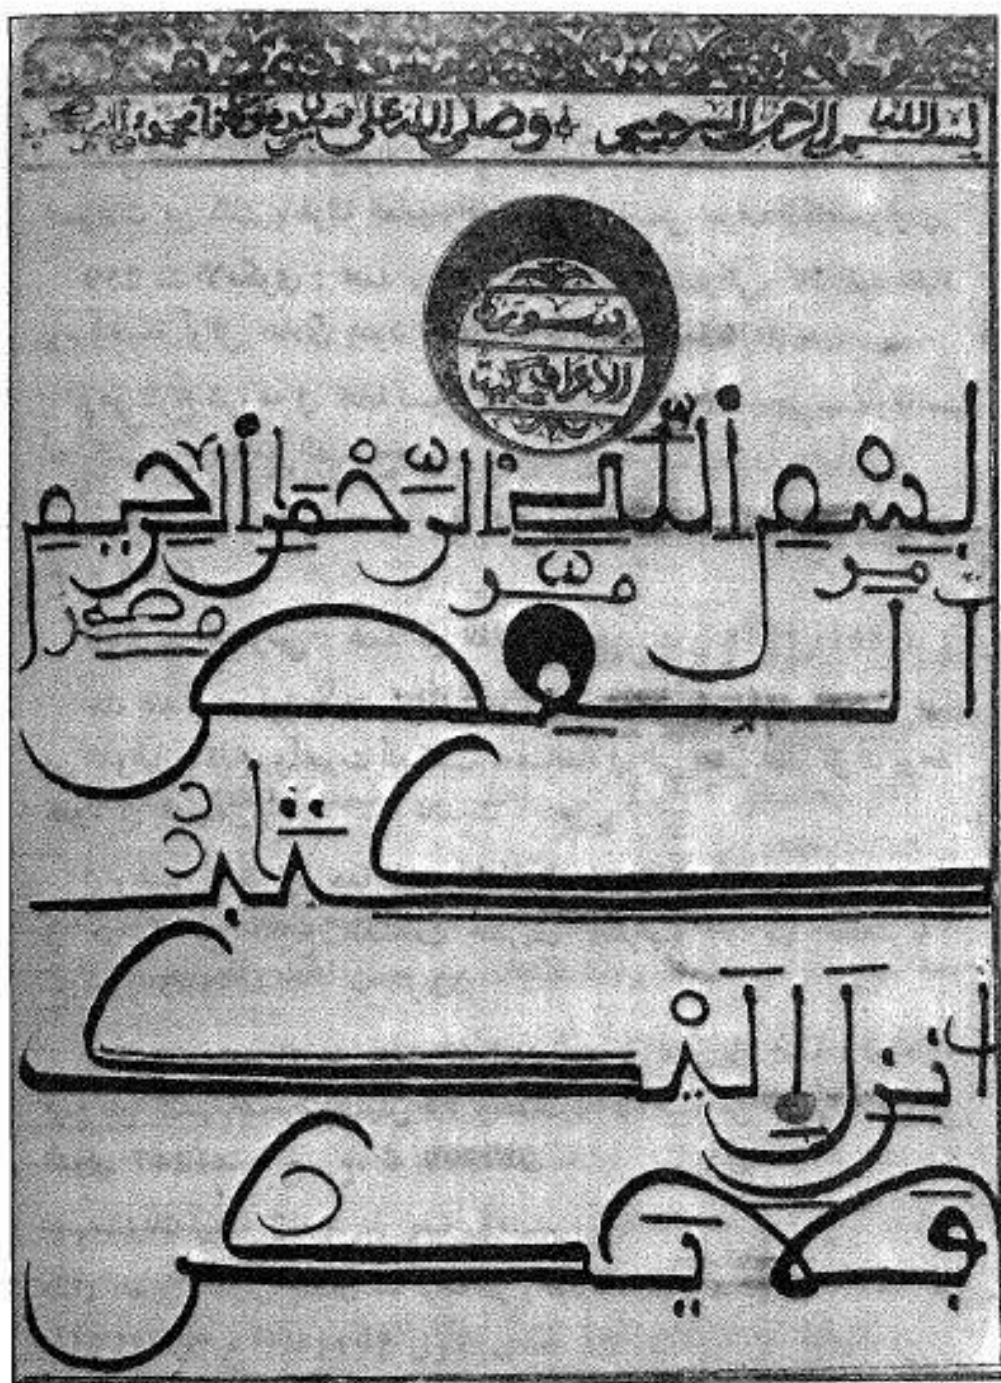 بسم الله الرحمن الرحيم وصلى الله على سيدنا
سورة
الاعراف مكية
بِسْمِ اللَّهِ الرَّحْمَٰنِ الرَّحِيمِ
المص
كِتَٰبٌ
اُنزِلَ اِلَيْكَ
فَلَا يَكُن